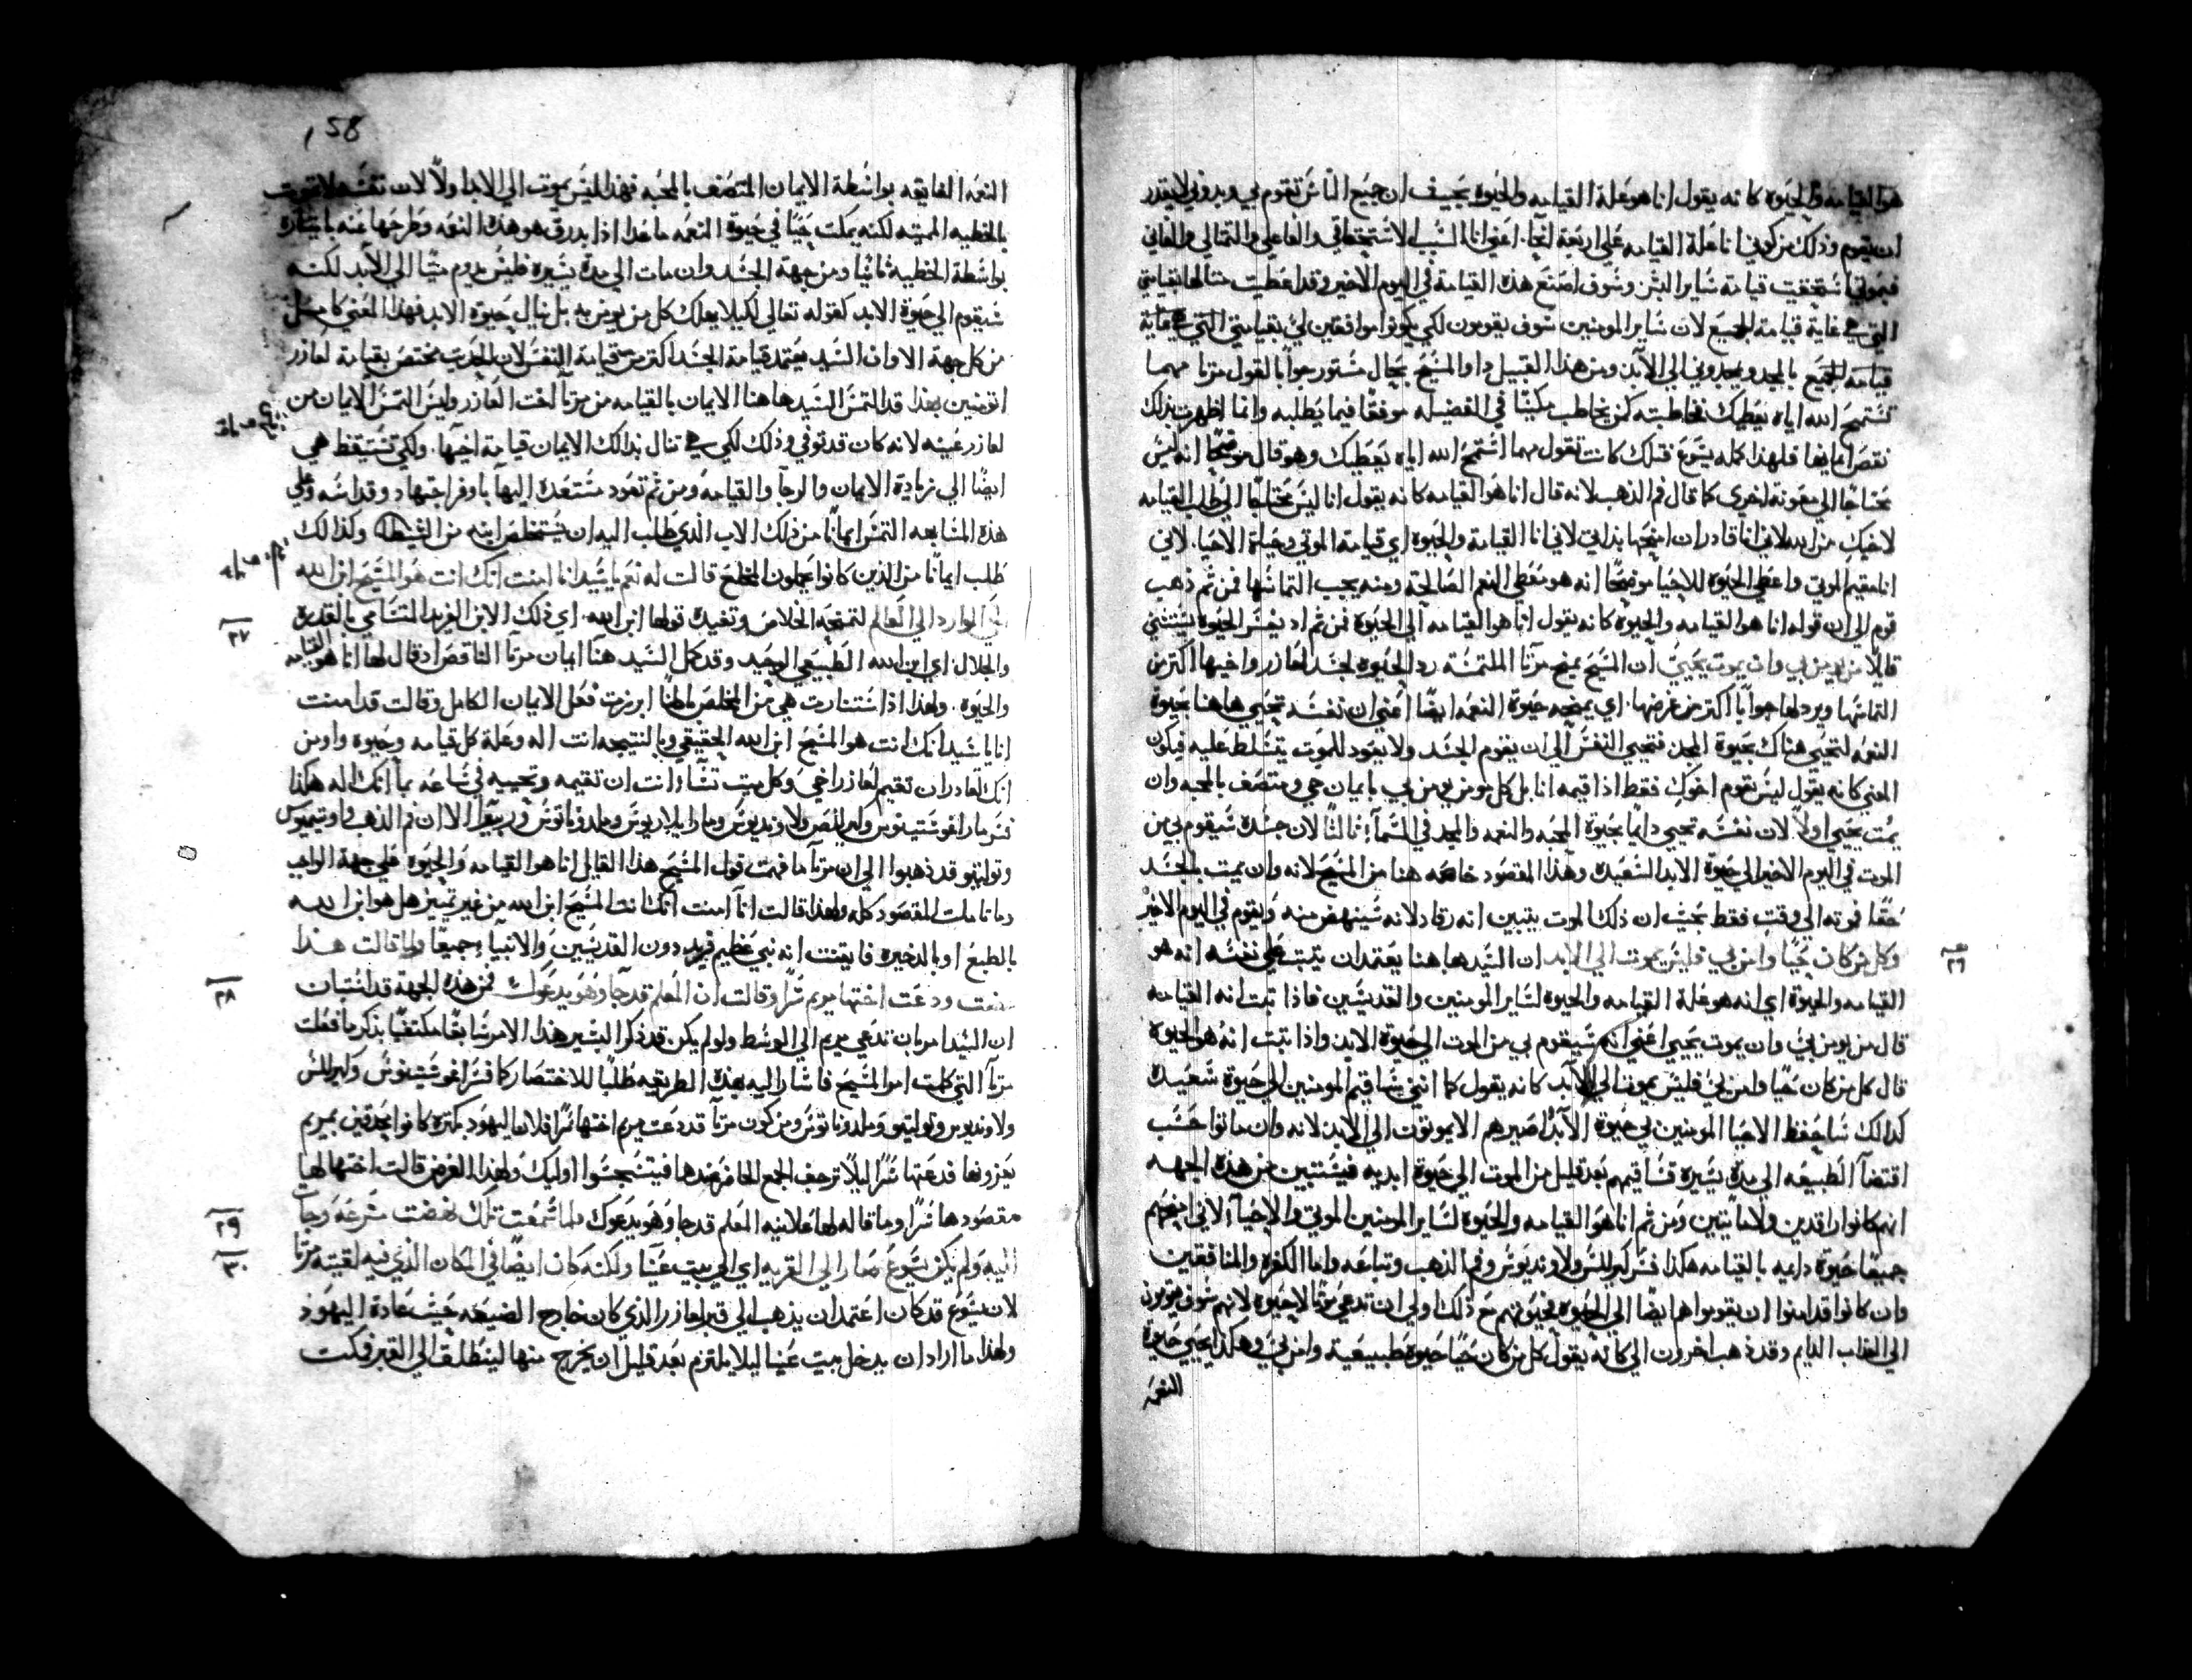 هو القيامه والحيوه كانه يقول انا هو علة القيامه والحيوه بحيث ان جميع الناس تقوم بي وبدوني لا يقدر
ان يقوم وذلك من كوني انا علة القيامه علي اربعة انحآ. اعني انا السبب الاستحقاقي والفاعلي والتمثالي والغائي
فبموتي استحقيت قيامة ساير البشر وسوف اصنع هذه القيامة في اليوم الاخير وقد اعطيت مثالها بقيامتي
التي هي غاية قيامة الجميع لان ساير المومنين سوف يقومون لكي يكونوا موافقين لي بقيامتي التي هي غاية
قيامة الجميع بالمجد ويمجدوني الي الابد ومن هذا القبيل داوا المسيح بحال مستور جوابا لقول مرتا مهما
تستمح الله اياه يعطيك فخاطبته كمن يخاطب مكينًا في الفضيله موفقًا فيما يطلبه وانما اظهرت بذلك
نقص ايمانها فلهذا كمله يسوع قبلك كانت تقول مهما استمح الله اياه يعطيك وهو قال موضحًا انه ليس
محتاجًا الي معونة اخري كما قال فم الذهب لانه قال انا هو القيامه كانه يقول انا ليس محتاجًا الي طلب القيامه
لاخيك من الله لاني انا قادر ان امنحها بذاتي لاني انا القيامه والحيوه اي قيامة الموتي وحياة الاحيا. لاني
انا مقيم الموتي واعطي الحيوه للاحيا موضحًا انه هو معطي النعم الصالحه ومنه يجب التماسها فمن ثم ذهب
قوم الي ان قوله انا هو القيامه والحيوه كانه يقول انا هو القيامه الي الحيوه فمن ثم اذ يفسر الحيوه يستثني
قايلًا من يومن بي وان يموت يحيي ان المسيح يمنح مرتا الملتمسة رد الحيوه لجسد لعازر واخيها اكثر من
التماسها ويرد لها جوابًا اكثر من غرضها. اي يمنحه حيوة النعمه ايضًا اعني ان نفسه تحيي هاهنا بحيوة
النعمه لتحيي هناك بحيوة المجد فتحيي النفس الي ان يقوم الجسد ولا يعود للموت يتسلط عليه فيكون
المعني كانه يقول ليس تقوم اخوك فقط اذا قيمه انا بل كل مومن يومن بي بايمان حي ومتصف بالمحبه وان
يمت يحيي اولًا لان نفسه تحيي دايمًا بحيوة المحبه والنعمه والمجد في السمآ. ثالثًا لان جسده سيقوم بي من
الموت في اليوم الاخير الي حيوة الابد السعيده وهذا المقصود خاصه هنا من المسيح لانه وان يمت بالجسد
حقًا فموته الي وقت فقط بحيث ان ذلك الموت يتبين انه رقاد لانه سينهض منه ويقوم في اليوم الاخير
٢٦
وكل من كان حيًا وامن بي فليس يموت الي الابد ان السيد هاهنا يعتمد ان يثبت علي نفسه انه هو
القيامه والحيوة اي انه هو علة القيامه والحيوه لساير المومنين والقديسين فاذا ثبت انه القيامه
قال من يومن بي وان يموت يحيي اعني انه سيقوم بي من الموت الي حيوة الابد واذا ثبت انه هو الحيوه
قال كل من كان حيًا وامن بي فليس يموت الي الابد كانه يقول كما انني ساقيم المومنين الي حيوة سعيدة
كذالك ساحفظ الاحيا المومنين بي حيوة الابد اصيرهم الا يموتون الي الابد لانه وان ماتوا حسب
اقتضآ الطبيعه الي مدة يسيره فساقيمهم بعد قليل من الموت الي حيوة ابديه فيستبين من هذه الجهه
انهم كانوا راقدين ولا مايتين ومن ثم انا هو القيامه والحيوة لساير المومنين الموتي والاحيآ لاني امنحهم
جميعًا حيوة دايمه بالقيامه هكذا فسر كيرللس ولاونديوس وفم الذهب وتباعه واما الكفره والمنافقين
وان كانوا قد امنوا ان يقوموا هم ايضًا الي الحيوه فحيوتهم مع ذلك اولي ان تدعي موتًا لا حيوة لانهم سوف يقومون
الي العذاب الدايم وقد ذهب اخرون الي كانه يقول كل من كان حيًا حيوة طبيعية وامن بي وهكذا يحيي حيوة
النعمه
158
النعمه الفايقه بواسطة الايمان المتصف بالمحبه فهذا ليس يموت الي الابد اولًا لان نفسه لا تموت
بالخطيه المميته لكنه يمكث حيًا في حيوة النعمه ما عدا اذا بدرق هو هذه النعمه وطرحها عنه باختياره
بواسطة الخطية ثانيًا ومن جهة الجسد وان مات الي مدة يسيره فليس يدوم ميتًا الي الابد لكنه
سيقوم الي حيوة الابد كقوله تعالي لكيلا يهلك كل من يومن به بل ينال حيوة الابد فهذا المعني كامل
من كل جهة الا وان السيد يعتمد قيامة الجسد اكثر من قيامة النفس لان الحديث مختص بقيامة لعازر
اتومنين بهذا قد التمس السيد هاهنا الايمان بالقيامه من مرتا اخت لعازر وليس التمس الايمان من
لعازر عينه لانه كان قد توفي وذلك لكي هي تنال بذالك الايمان قيامة اخيها. ولكي تستيقظ هي
ايضًا الي زيادة الايمان والرجآ والقيامه ومن ثم تعود مستعدة اليها باوفر اجتهاد وقداسه وعلي
هذه المشابهه التمس ايمانًا من ذلك الاب الذي طلب اليه ان يستخلص ابنه من الشيطان وكذالك
طلب ايمانًا من الذين كانوا يحملون المخلع قالت له نعم يا سيد انا امنت انك انت هو المسيح ابن الله
٢٧
الحي الوارد الي العالم لتمنحه الخلاص وتفيده قولها ابن الله. اي ذلك الابن الفريد المتسامي بالقدره
والجلال. اي ابن الله الطبيعي الوحيد وقد كمل السيد هنا ايمان مرتا الناقص اذ قال لها انا هو القيامه
والحيوه. ولهذا اذ استنارت هي من المخلص باطنًا ابرزت فعل الايمان الكامل وقالت قد امنت
انا يا سيد انك انت هو المسيح ابن الله الحقيقي وبالنتيجه انت اله وعلة كل قيامه وحيوه واومن
انك لقادر ان تقيم لعازر اخي وكل ميت تشآ وانت ان تقيمه وتحييه في ساعه بما انك اله هكذا
فسر ماراغوستينوس وكيرللس ولاونديوس وماراليلاريوس وملدوناتوس وريبيرا الا ان فم الذهب واوتيميوس
وتولیتو قد ذهبوا الي ان مرتا ما فهمت قول المسيح هذا القايل انا هو القيامه والحيوه علي جهة الواجب
وما تاملت المقصود كله ولهذا قالت انا امنت انك انت المسيح ابن الله من غير تمييز هل هو ابن الله
بالطبع او بالذخيره فايقنت انه نبي عظيم فريد دون القديسين والانبيآ جميعًا ولما قالت هذا
٢٨
مضت ودعت اختها مريم سرًا وقالت ان المعلم قد جآ وهو يدعوك فمن هذه الجهة قد استبان
ان السيد امر بان تدعي مريم الي الوسط ولو لم يكن قد ذكر البشير هذا الامر سابقًا مكتفيًا بذكر ما فعلت
مرتآ التي كلمت امر المسيح فاشار اليه بهذه الطريقه طلبًا للاختصار كما فسر اغوستينوس وكيرللس
ولاونديوس وتوليتو وملدوناتوس ومن كون مرتآ قد دعت مريم اختها سرًا فلان اليهود بكثره كانوا محدقين بمريم
يعزونها قدعتها سرًا ليلًا ترجف الجمع الحاضر عندها فيتسجسوا اوليك ولهذا الغرض قالت اختها لها
٢٩
مقصودها سرًا وما قاله لها علانيه المعلم قد جا وهو يدعوك فلما سمعت تلك نهضت مسرعة وجات
٣٠
اليه ولم يكن يسوع صار الي القريه اي الي بيت عنيا ولكنه كان ايضًا في المكان الذي فيه لقيته مرتا
لان يسوع قد كان اعتمد ان يذهب الي قبر لعازر الذي كان خارج الضيعه حيث عادة اليهود
ولهذا ما اراد ان يدخل بيت عنيا ليلا يلتزم بعد قليل ان يخرج منها لينطلق الي القبر فمكث